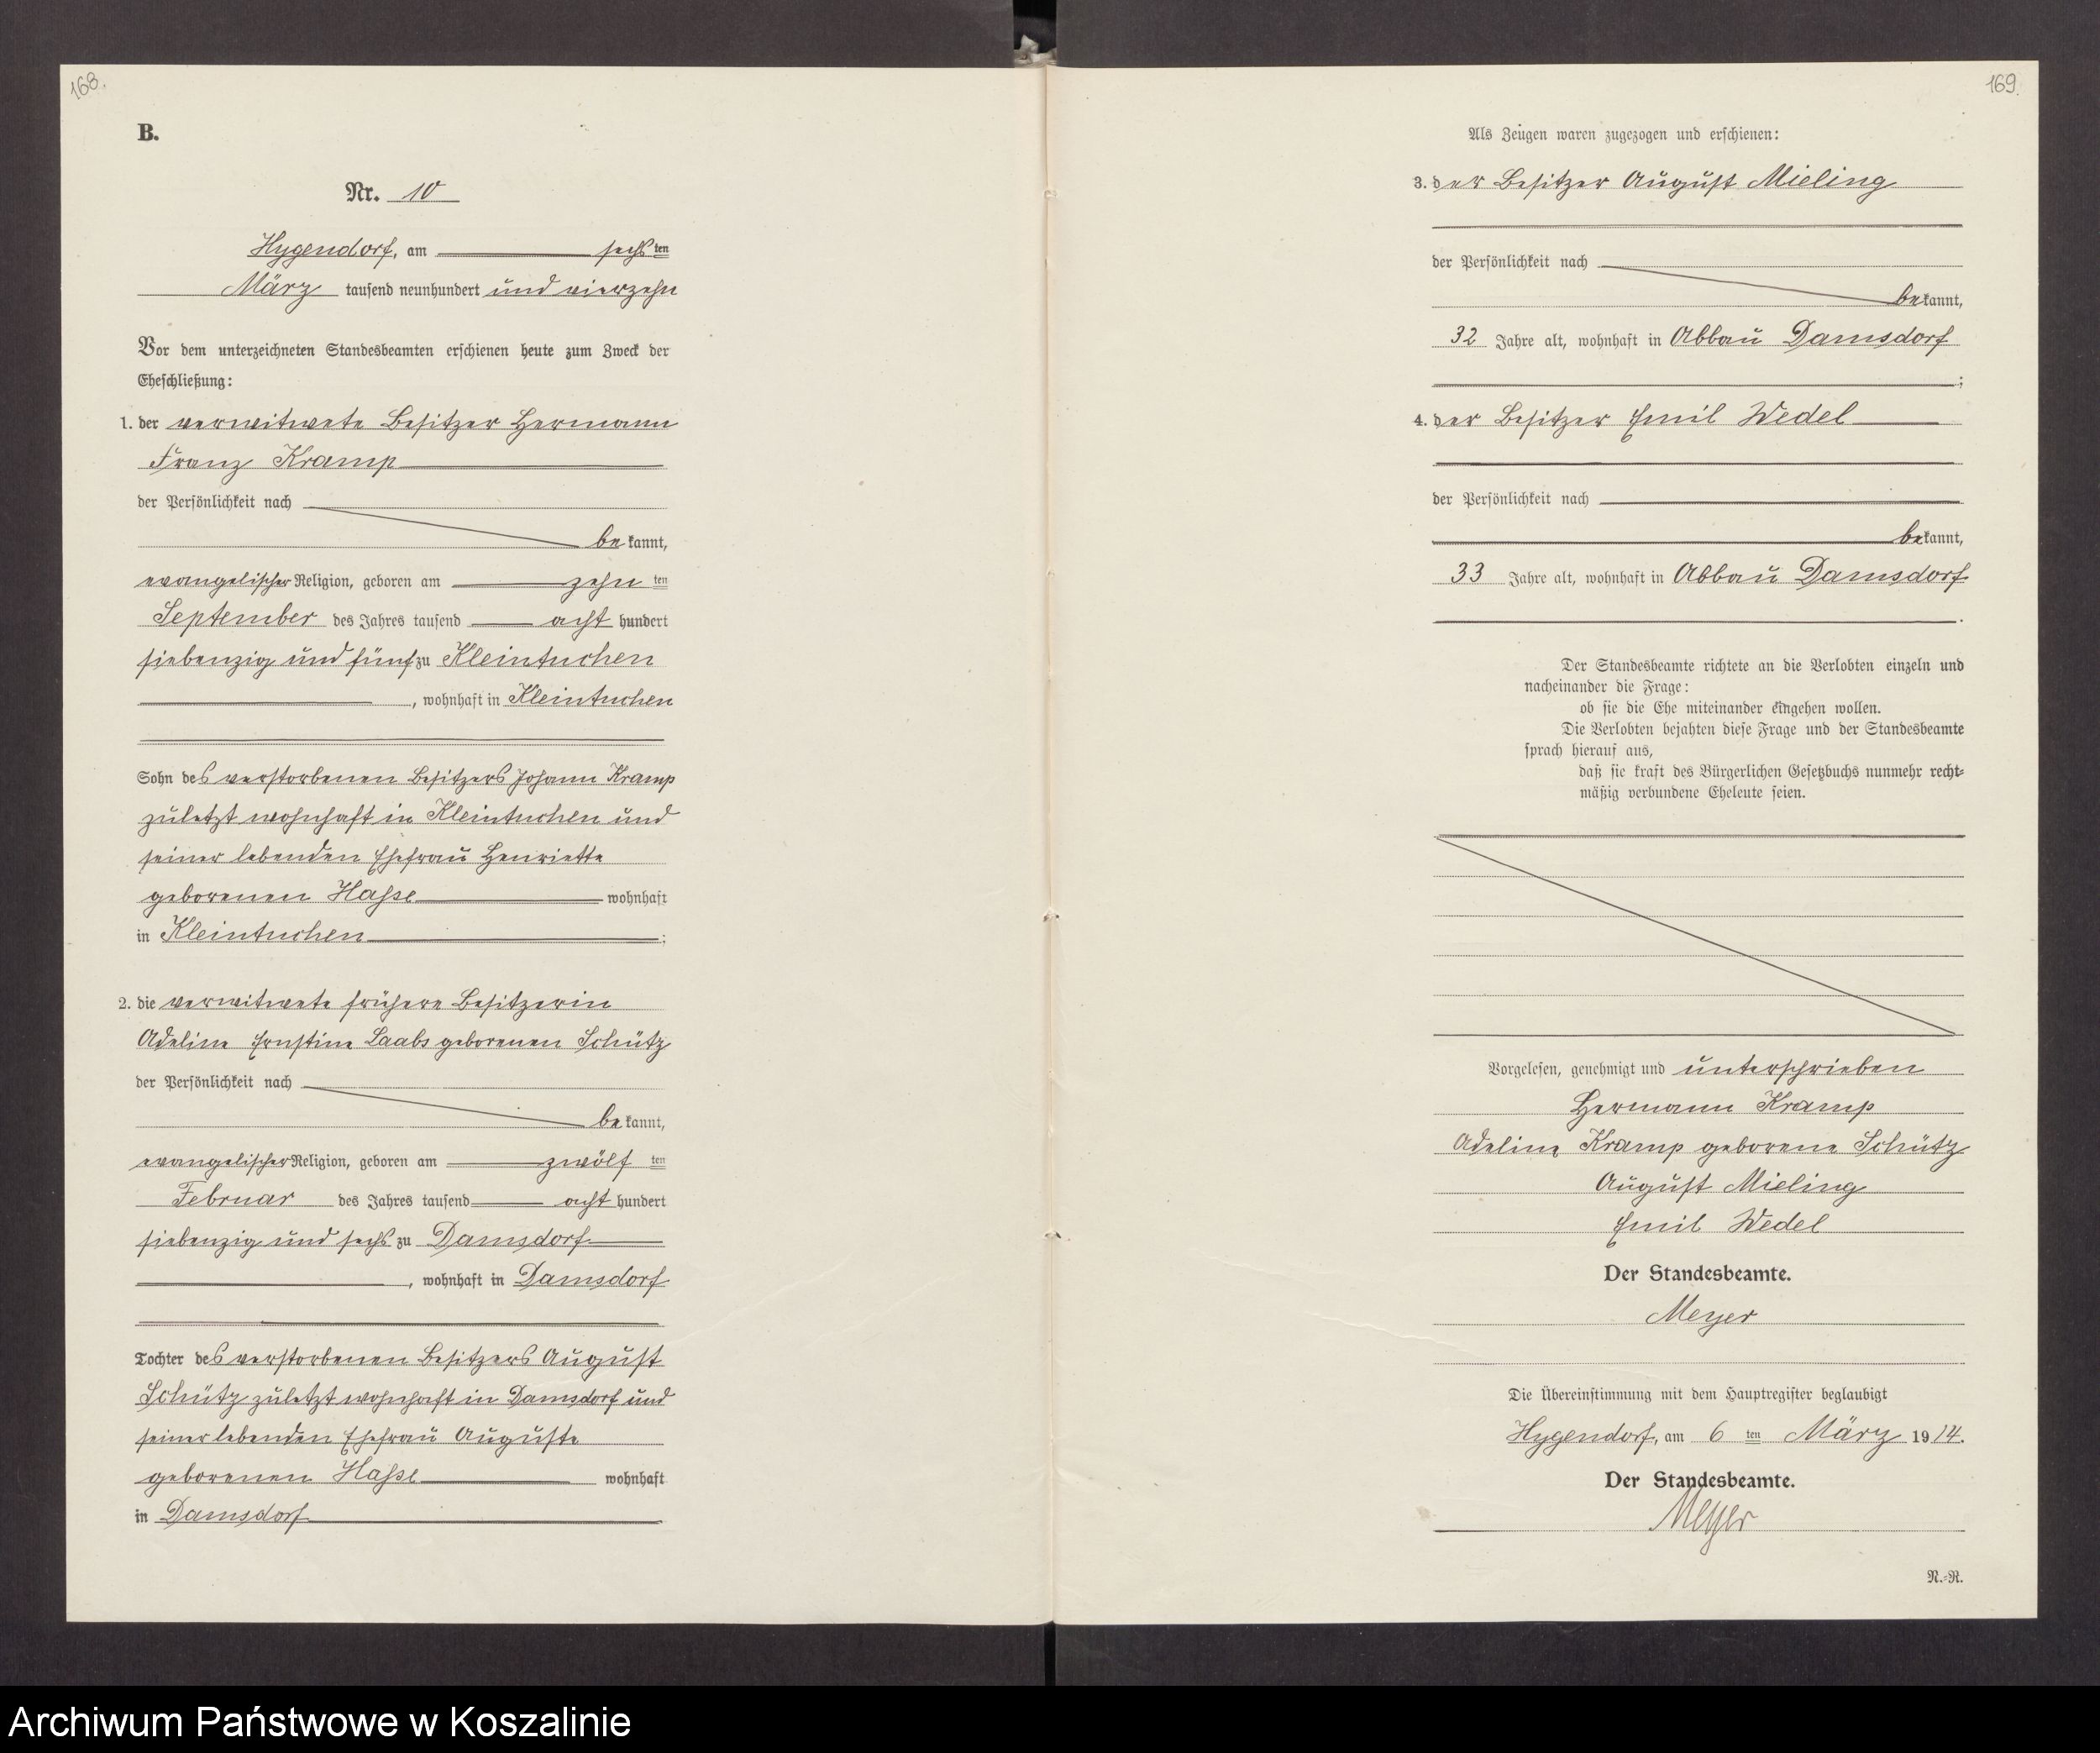 168.
B.
Nr. 10
Hygendorf, am sechsten
März tausend neunhundert und vierzehn
Vor dem unterzeichneten Standesbeamten erschienen heute zum Zweck der
Eheschließung:
1. der verwitwete Besitzer Hermann
Franz Kramp
der Persönlichkeit nach
bekannt,
evangelischer Religion, geboren am zehnten
September des Jahres tausend acht hundert
siebenzig und fünf zu Kleintuchen
, wohnhaft in Kleintuchen
Sohn des verstorbenen Besitzers Johann Kramp
zuletzt wohnhaft in Kleintuchen und
seiner lebenden Ehefrau Henriette
geborenen Hasse wohnhaft
in Kleintuchen ;
2. die verwitwete frühere Besitzerin
Adeline Ernstine Laabs geborenen Schütz
der Persönlichkeit nach
bekannt,
evangelischer Religion, geboren am zwölften
Februar des Jahres tausend acht hundert
siebenzig und sechs zu Damsdorf
, wohnhaft in Damsdorf
Tochter des verstorbenen Besitzers August
Schütz zuletzt wohnhaft in Damsdorf und
seiner lebenden Ehefrau Auguste
geborenen Hasse wohnhaft
in Damsdorf
169.
Als Zeugen waren zugezogen und erschienen:
3. der Besitzer August Mieling
der Persönlichkeit nach
bekannt,
32 Jahre alt, wohnhaft in Abbau Damsdorf
;
4. der Besitzer Emil Wedel
der Persönlichkeit nach
bekannt,
33 Jahre alt, wohnhaft in Abbau Damsdorf
.
Der Standesbeamte richtete an die Verlobten einzeln und
nacheinander die Frage:
ob sie die Ehe miteinander eingehen wollen.
Die Verlobten bejahten diese Frage und der Standesbeamte
sprach hierauf aus,
daß sie kraft des Bürgerlichen Gesetzbuchs nunmehr recht-
mäßig verbundene Eheleute seien.
Vorgelesen, genehmigt und unterschrieben
Hermann Kramp
Adeline Kramp geborene Schütz
August Mieling
Emil Wedel
Der Standesbeamte.
Meyer
Die Übereinstimmung mit dem Hauptregister beglaubigt
Hygendorf, am 6 ten März 1914.
Der Standesbeamte.
Meyer
N.-R.
Archiwum Państwowe w Koszalinie